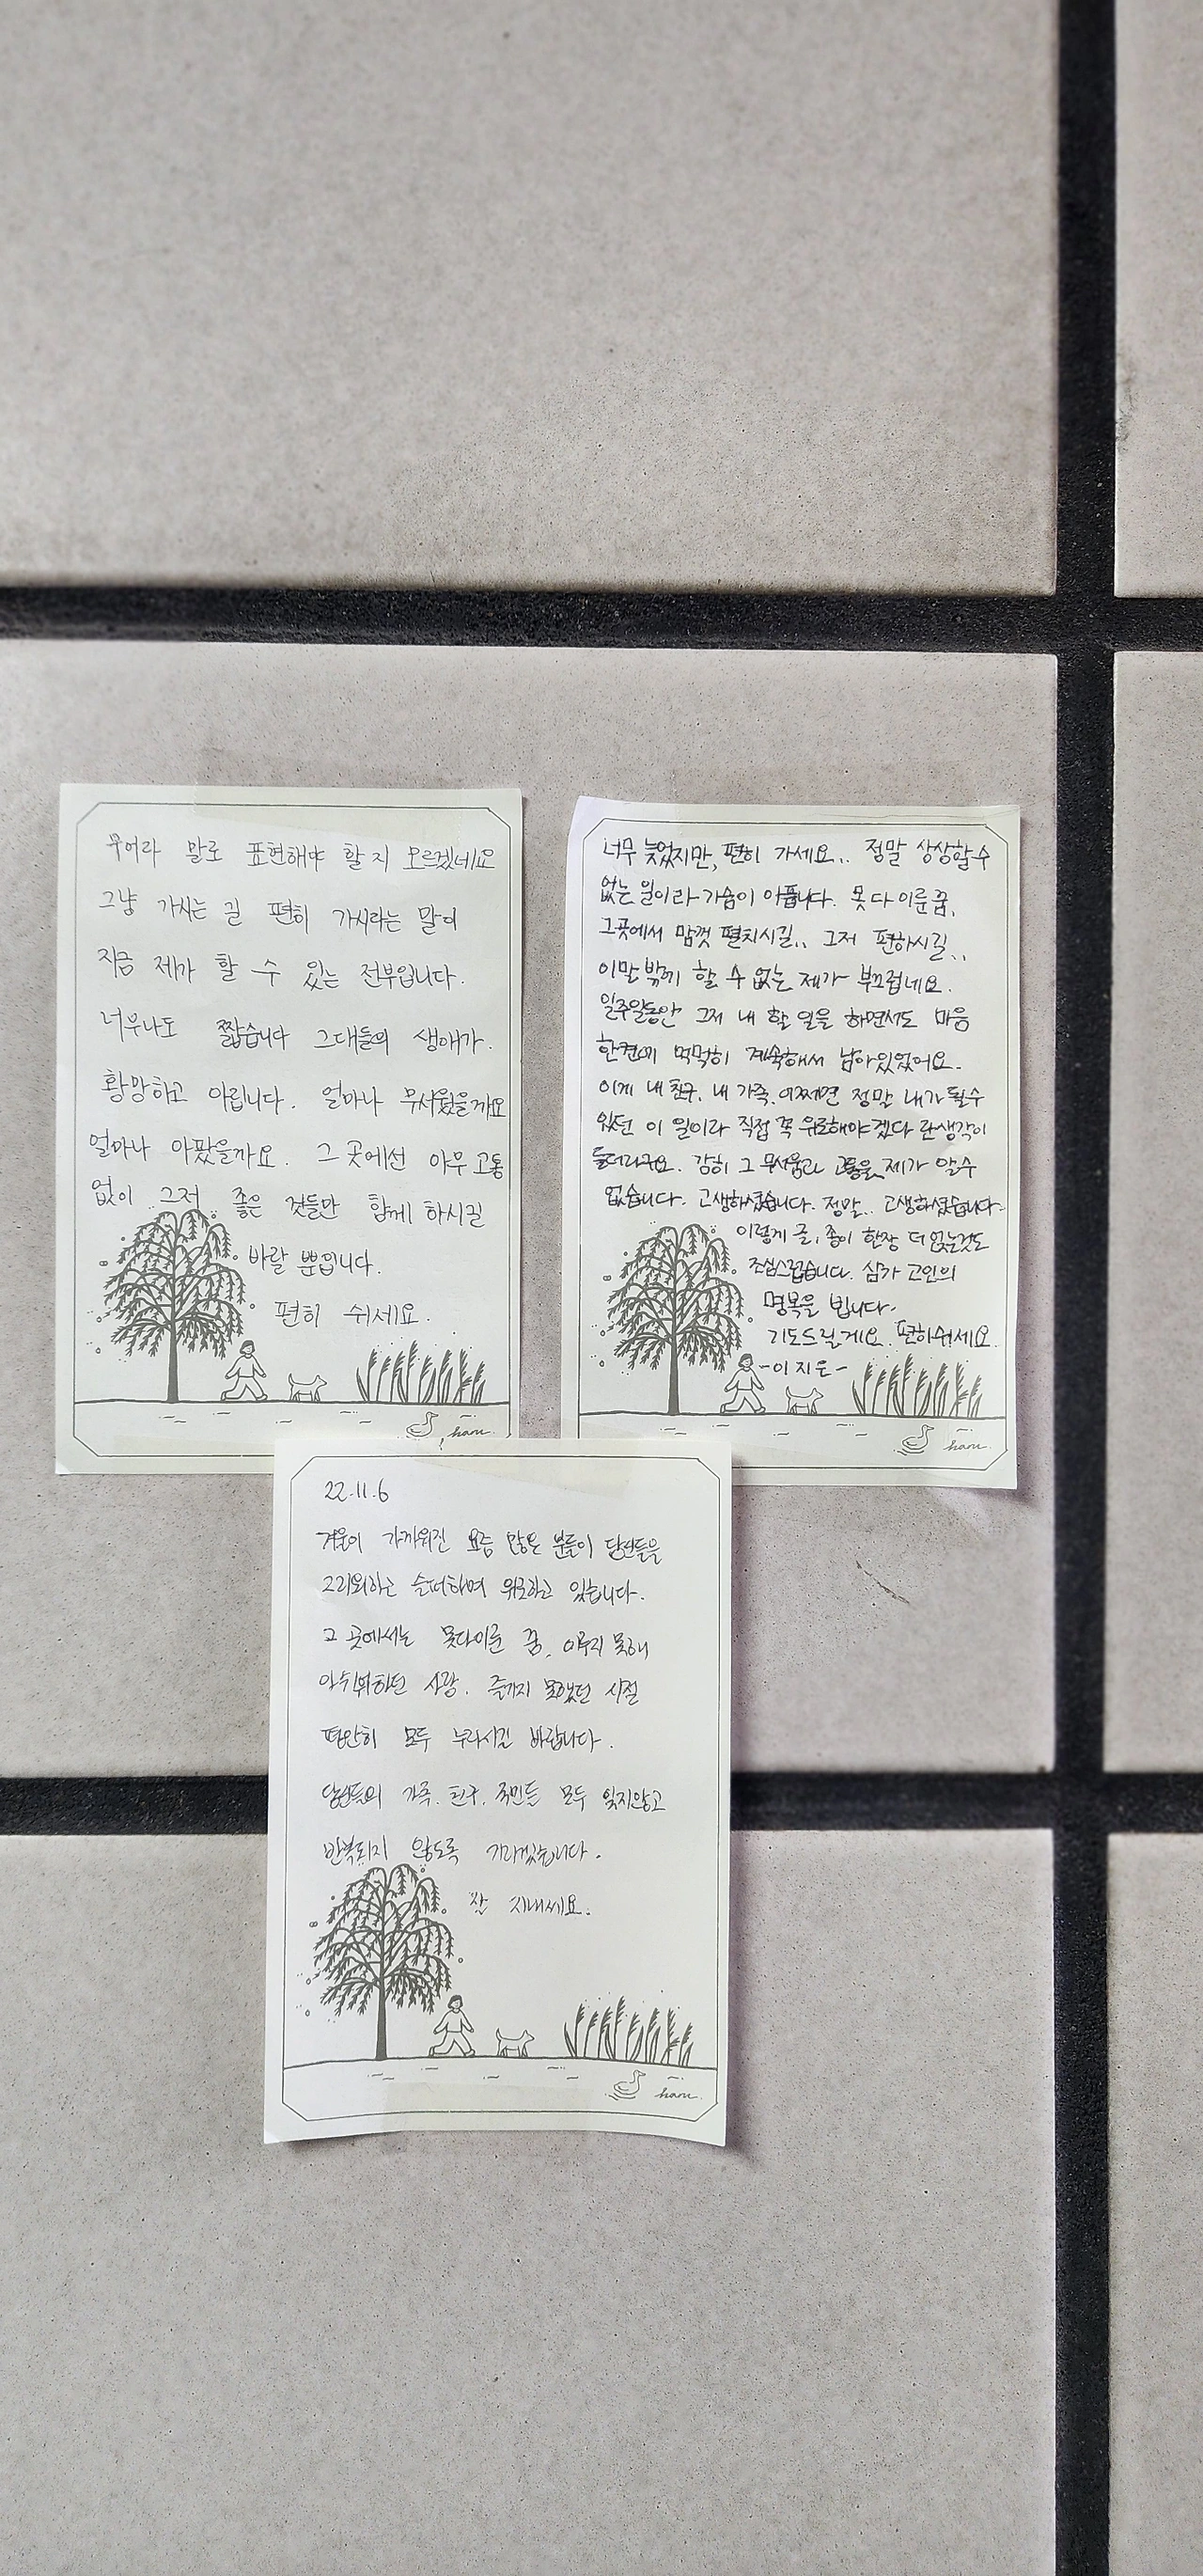 무어라 말로 표현해야 할지 모르겠네요
그냥 가시는 길 편히 가시라는 말이
지금 제가 할 수 있는 전부입니다.
너무나도 짧습니다 그대들의 생애가.
황망하고 아립니다. 얼마나 무서웠을까요
얼마나 아팠을까요. 그 곳에선 아무 고통
없이 그저 좋은 것들만 함께 하시길
바랄 뿐입니다.
편히 쉬세요.
haru.
너무 늦었지만, 편히 가세요.. 정말 상상할수
없는 일이라 가슴이 아픕니다. 못다이룬 꿈,
그곳에서 맘껏 펼치시길.. 그저 편하시길..
이말 밖에 할 수 없는 제가 부끄럽네요.
일주일동안 그저 내 할 일을 하면서도 마음
한켠에 먹먹히 계속해서 남아있었어요.
이게 내 친구, 내 가족, 어쩌면 정말 내가 될수
있던 이 일이라 직접 꼭 위로해야겠다 란생각이
들더라구요. 감히 그 무서움과 고통을 제가 알수
없습니다. 고생하셨습니다. 정말.. 고생하셨습니다.
이렇게 글, 종이 한장 더 얹는것도
조심스럽습니다. 삼가 고인의
명복을 빕니다.
기도드릴게요. 편히쉬세요.
-이지은-
haru.
22.11.6
겨울이 가까워진 요즘 많은 분들이 당신들을
그리워하고 슬퍼하며 위로하고 있습니다.
그 곳에서는 못다이룬 꿈, 이루지 못해
아쉬워하던 사랑, 즐기지 못했던 시절
평안히 모두 누리시길 바랍니다.
당신들의 가족, 친구, 국민들 모두 잊지않고
반복되지 않도록 기리겠습니다.
잘 지내세요.
haru.